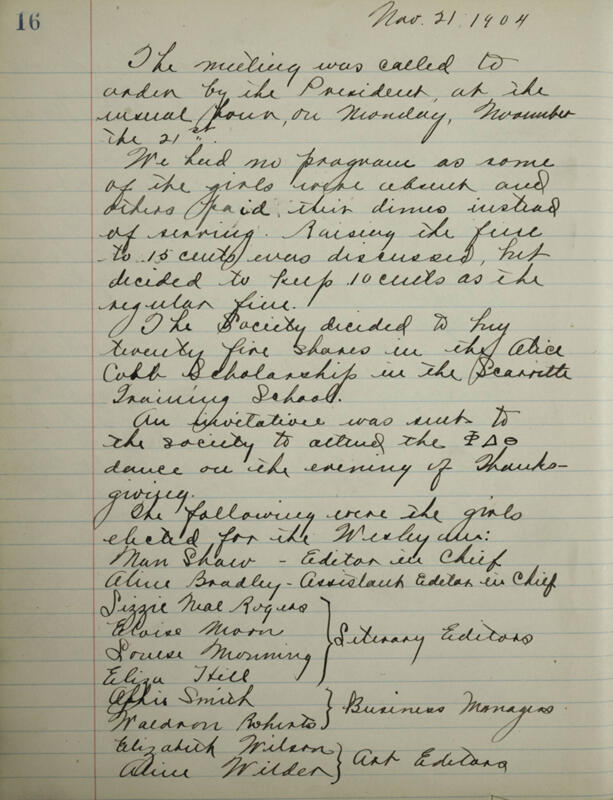 16
Nov. 21. 1904
The meeting was called to
order by the President, at the
usual hour, on Monday, November
the 21st.
We had no program as some
of the girls were absent and
others paid their dimes instead
of serving. Raising the fine
to 15 cents was discussed, but
decided to keep 10 cents as the
regular fine.
The Society decided to buy
twenty five shares in the Alice
Cobb Scholarship in the Scarritte
Training School.
An invitation was sent to
the society to attend the Φ Δ Θ
dance on the evening of Thanks-
giving.
The following were the girls
elected for the Wesleyan:
Shaw - Editor in Chief
Aline Bradley - Assistant Editor in Chief
Lizzie Mae Rogers
Eloise Morn
Louise Monning
Literary Editors
Eliza Hill
Smith
Waldron Roberts
Business Managers
Elizabeth Wilson
Aline Wilder
Art Editors